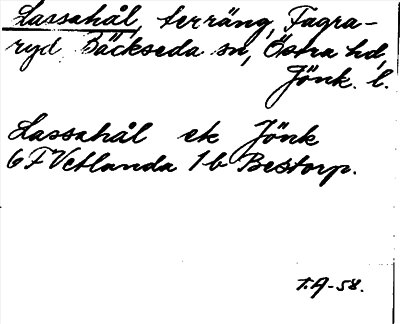 Lassahål, terräng, Fagra-
ryd Bäckseda sn, Östra hd,
Jönk. l.
Lassahål ek Jönk
6F Vetlanda 1b Bestorp.
T.A-58.